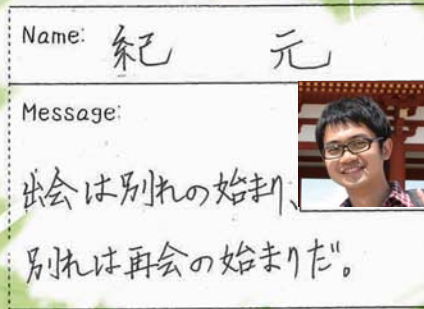 Name: 紀 元
Message:
出会は別れの始まり、
別れは再会の始まりだ。